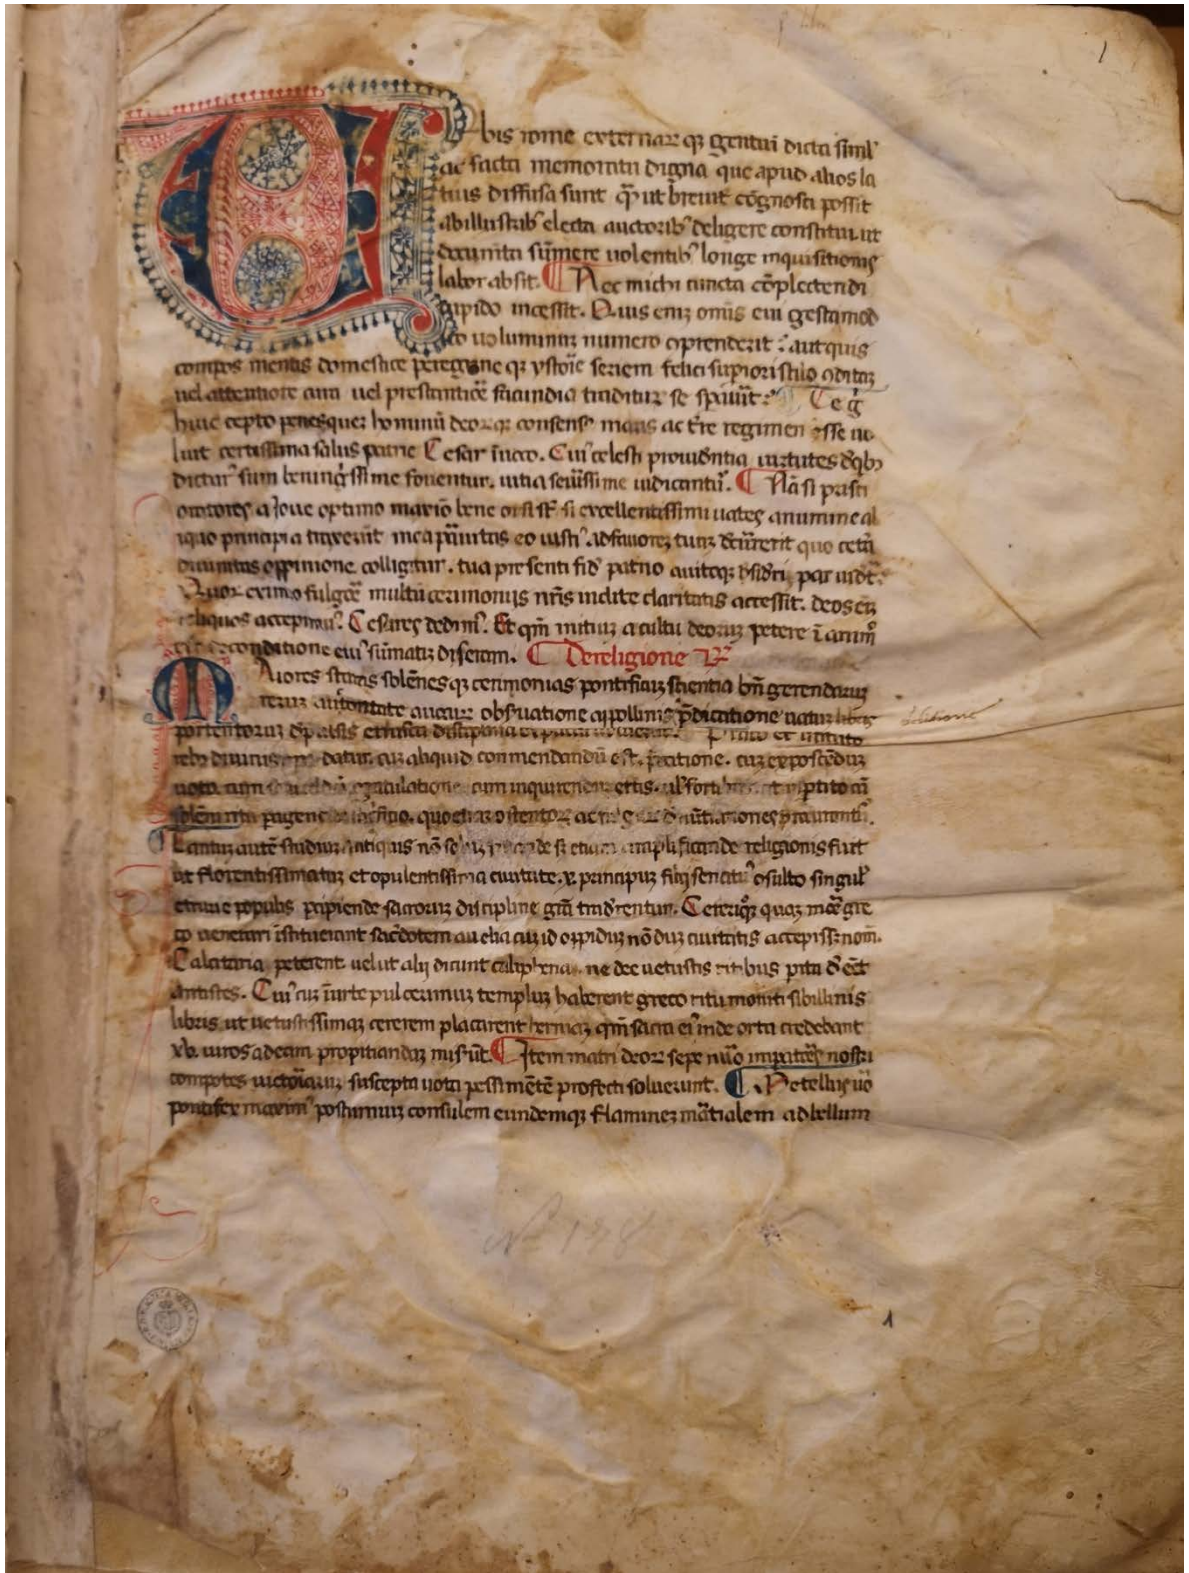 1
Vrbis rome externarꝝ qꝫ gentiū dicta siml'
ac facta memoratu digna que apud alios la
tius diffusa sunt qͣꝫ ut breuit̓ cōgnosci possit
ab illustrib' electa auctorib' deligere constitui. ut
documēta sūmere uolentib' longe inquisitionis
labor absit. ¶ Nec michi cuncta cōplectendi
cupido incessit. Quis enīꝫ omīs eui gesta mod
ico uoluminuꝫ numero cōprenderit : aut quis
compos mentis domestice peregrine qꝫ ystoīe seriem felici supiori stilo ↄditaꝫ
uel attentiore cura uel prestantiōe facundia traditurꝫ se spauit̓ : Te g̊
huic cepto penes quez hominū deoꝝ qꝫ consensꝰ maris ac tr̄e regimen esse uo
luit certissima salus patrie Cesar īuoco. Cuiꝰ celesti prouidentia uirtutes de qbꝫ
dicturꝰ sum beningͥssime fouentur. uitia seuissime uidicantur. ¶ Nā si prisci
oratores a Ioue optimo maxīo bene orsi st̄ si excellentissimi uates a numine al
iquo principia traxerūt mea paruitas eo iustiꝰ ad fauorez tuuꝫ decurrerit quo cetā
diuinitas oppinione colligitur. tua presenti fide patrio auitoqꝫ sideri par uidet̓
Quoꝝ eximio fulgore multū cerimonijs nr̄is inclite claritatis accessit. deos eīꝫ
reliquos accepimꝰ. Cesares dedimꝰ. Et qm̄ initiuꝫ a cultu deoruꝫ petere ī animo
est de conditione eiꝰ sūmatiꝫ diseram. ¶ De religione
Maiores statas solēnes qꝫ cerimonias pontificuꝫ scientia bn̄ gerendaruꝫ
reruꝫ auctoritate auguꝝ obseruatione appollinis p̄dictione uatuꝫ libris
portentoruꝫ depulsis etrusca disciplina explicari uoluerūt. Prisco et instituto
rebꝫ diuinis opera datur. cuꝫ aliquid conmendandū est. p̄catione. cuꝫ exposcēduꝫ
uoto. cum soluendū gratulatione. cum inquirenduꝫ extis. ul' sortibus impetrito cū
solēni ritu pagendū sacrificio. quo etiaꝫ ostentoꝝ ac fulguꝝ denūtiationes procurantur.
Tantuꝫ autē studiuꝫ antiquis nō soluꝫ seruande sꝫ etiam amplificande religionis fuit
ut florentissima tuꝫ et opulentissima ciuitate. x. principuꝫ filij senatꝰ ↄsulto singul'
etrurie populis p̄cipiende sacroruꝫ discipline gr̄a traderentur. Cereriqꝫ quaꝫ more gre
co uenerari īstituerant sacerdotem a uelia cuꝫ id oppiduꝫ nō duꝫ ciuitatis accepissꝫ nom̄.
Calcitana peterent. uel ut alij dicunt caliphenā. ne dee uetustis ritibus perita deēēt
antistes. Cuiꝰ cuꝫ ī urbe pulcerimuꝫ templuꝫ haberent greco ritu moniti sibillinis
libris ut uetustissimaꝫ cererem placarent hennaꝫ qm̄ sacra eiꝰ inde orta credebant
xv. uiros ad eam propitiandaꝫ miserūt. ¶ Item matri deoꝝ sepe nūo imp̄atores nostri
compotes uictoriaruꝫ suscepta uota pessimētē profecti soluerunt. ¶ Metellus uō
pontifex maximꝰ postumiuꝫ consulem eundemqꝫ flaminez martialem ad bellum
N° 138
1